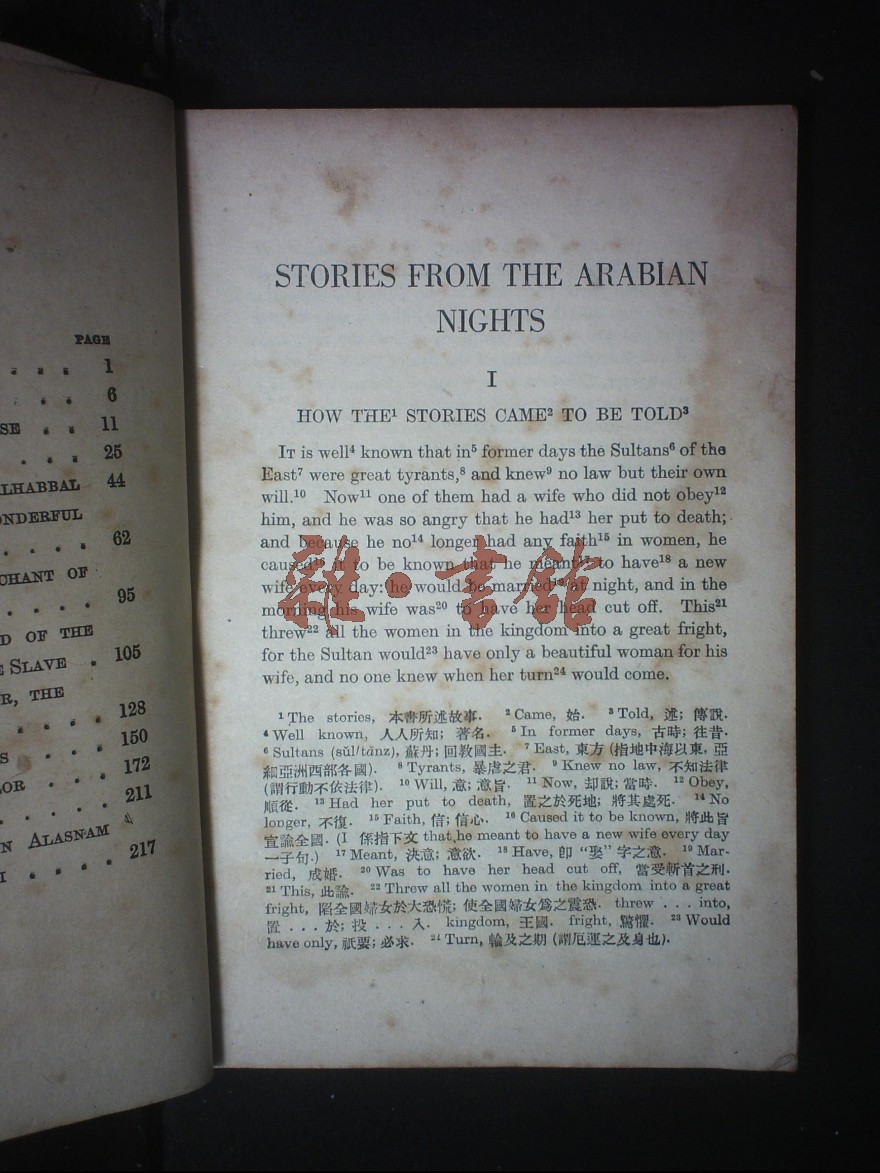 PAGE
. . . . 1
. . . 6
SE . . 11
. . . . 25
LHABBAL 44
ONDERFUL
. . . . 62
CHANT OF
. . . . 95
D OF THE
E SLAVE . 105
R, THE
. . . . 128
S . . . 150
LOR . . . 172
. . . . 211
N ALASNAM
I . . . . 217
STORIES FROM THE ARABIAN
NIGHTS
I
HOW THE¹ STORIES CAME² TO BE TOLD³
IT is well⁴ known that in⁵ former days the Sultans⁶ of the
East⁷ were great tyrants,⁸ and knew⁹ no law but their own
will.¹⁰ Now¹¹ one of them had a wife who did not obey¹²
him, and he was so angry that he had¹³ her put to death;
and because he no¹⁴ longer had any faith¹⁵ in women, he
caused¹⁶ it to be known that he meant¹⁷ to have¹⁸ a new
wife every day: he would be married¹⁹ at night, and in the
morning his wife was²⁰ to have her head cut off. This²¹
threw²² all the women in the kingdom into a great fright,
for the Sultan would²³ have only a beautiful woman for his
wife, and no one knew when her turn²⁴ would come.
雜·書館
¹ The stories, 本書所述故事. ² Came, 始. ³ Told, 述; 傳說.
⁴ Well known, 人人所知; 著名. ⁵ In former days, 古時; 往昔.
⁶ Sultans (sŭl/tănz), 蘇丹; 回教國主. ⁷ East, 東方 (指地中海以東, 亞
細亞洲西部各國). ⁸ Tyrants, 暴虐之君. ⁹ Knew no law, 不知法律
(謂行動不依法律). ¹⁰ Will, 意; 意旨. ¹¹ Now, 却說; 當時. ¹² Obey,
順從. ¹³ Had her put to death, 置之於死地; 將其處死. ¹⁴ No
longer, 不復. ¹⁵ Faith, 信; 信心. ¹⁶ Caused it to be known, 將此旨
宣諭全國. (I 係指下文 that he meant to have a new wife every day
一子句.) ¹⁷ Meant, 決意; 意欲. ¹⁸ Have, 卽 "娶" 字之意. ¹⁹ Mar-
ried, 成婚. ²⁰ Was to have her head cut off, 當受斬首之刑.
²¹ This, 此諭. ²² Threw all the women in the kingdom into a great
fright, 陷全國婦女於大恐慌; 使全國婦女爲之震恐. threw . . . into,
置 . . . 於; 投 . . . 入. kingdom, 王國. fright, 驚懼. ²³ Would
have only, 祇要; 必求. ²⁴ Turn, 輪及之期 (謂厄運之及身也).